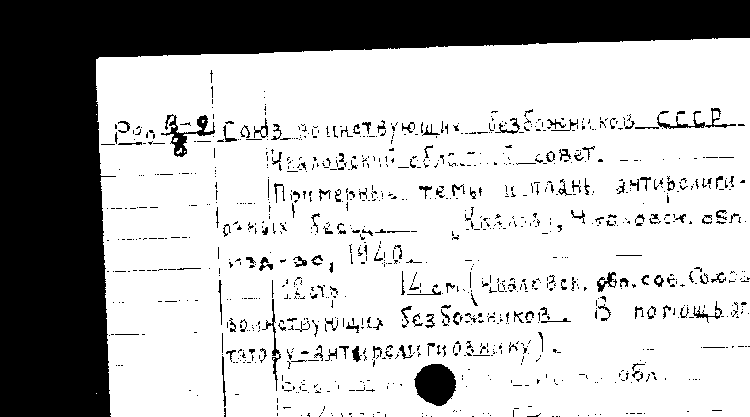 Рел В-9 Союз воинствующих безбожников СССР
8
Чкаловский областной совет.
Примерные темы и планы антирелиги-
озных бесед. [Чкалов], Чкаловск. обл.
изд-во, 1940.
12 стр. 14 см (Чкаловск. обл. сов. Союза
воинствующих безбожников. В помощь аги
татору-антирелигиознику).
обл.